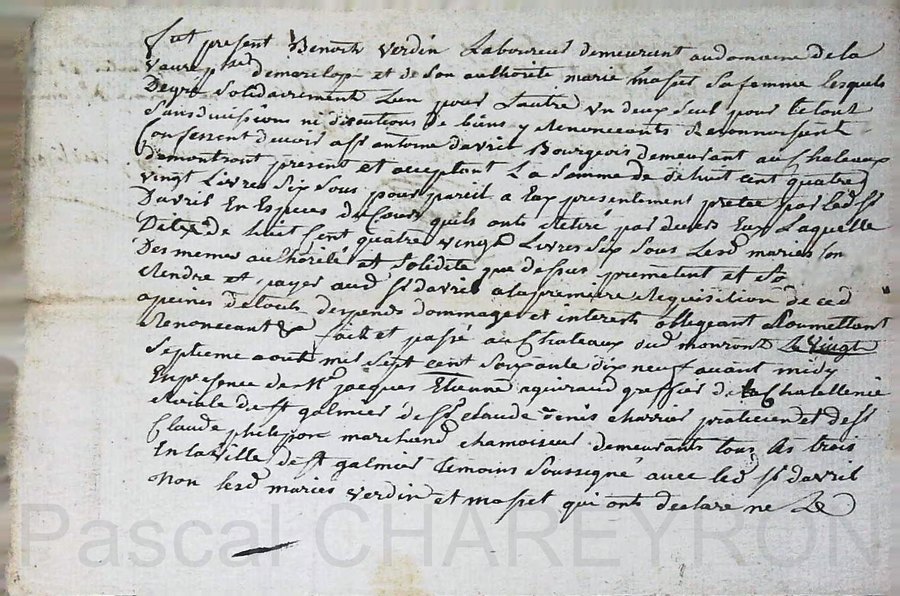 fut present Benoit verdin Laboureur demeurant au domaine de la
vaure psse de marclop et de son authorite marie masset sa femme lesquels
De gré solidairement L'un pour L'autre un deux seul pour le tout
sans divisions ni discutions de biens y Renoncants Reconnoisent
Confessent devoir a sr antoine davril Bourgeois demeurant au Chateaux
de montront present et acceptant La Somme de de huit cent quatre
vingt Livres six sous pour pareil a eux presentement pretee par led sr
Davril En Especes du Cours quils ont Retiré par devers Eux Laquelle
de huit Cent quatre vingt Livres six sous Lesd maries son
Des memes authorité et solidité que dessus promettent et
Rendre et payer aud sr davril a la premiere Requisition de ced
a peines de tous despends dommages et interests obligeant soumettant
Renoncant & fait et passé au Chateaux dud monront Le vingt
Septieme aout mil sept cent soixante dix neuf avant midy
En presence de Me jacques Etienne aguiraud greffier de la Chatellenie
Roiale de st galmier de sr Claude denis charrier praticien et de sr
Claude philipon marchand chamoiseur demeurants tous les trois
En la ville de st galmier temoins soussigné avec led sr davril
Non lesd maries verdin et masset qui ont declare ne Le
Pascal CHAREYRON